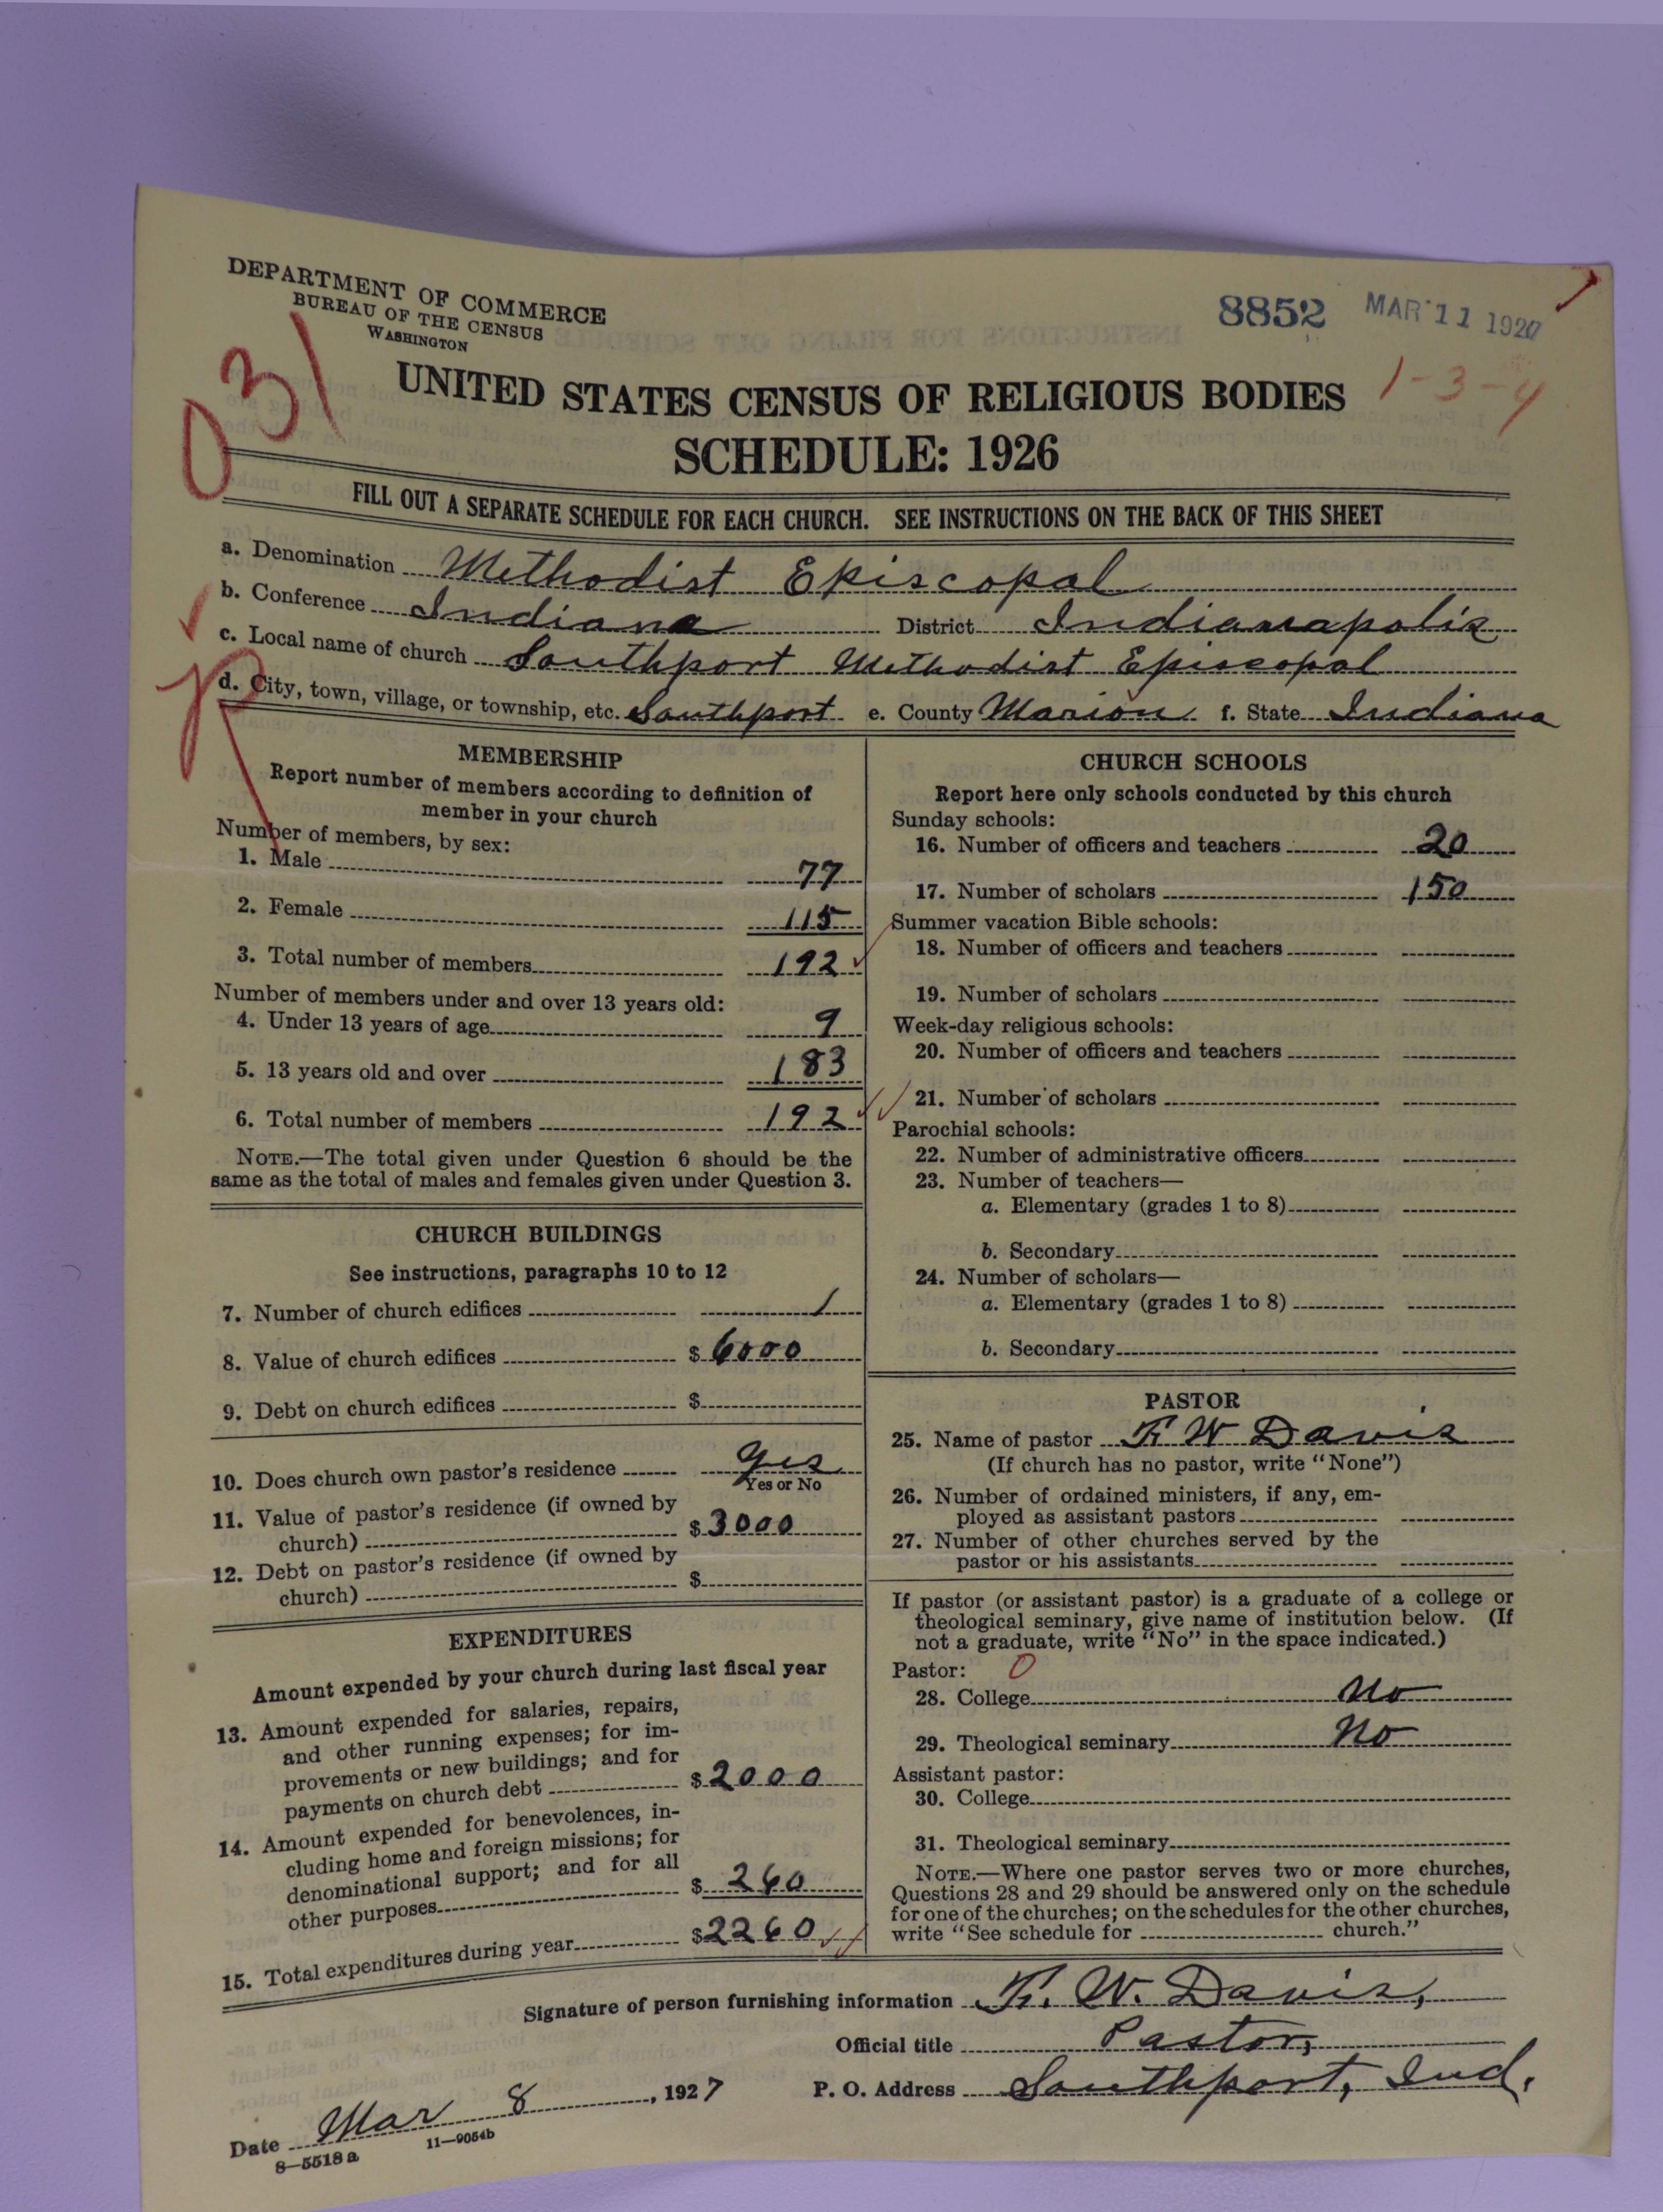 DEPARTMENT OF COMMERCE
BUREAU OF THE CENSUS
WASHINGTON
8852 MAR 11 1927
031
1-3-4
UNITED STATES CENSUS OF RELIGIOUS BODIES
SCHEDULE: 1926
FILL OUT A SEPARATE SCHEDULE FOR EACH CHURCH. SEE INSTRUCTIONS ON THE BACK OF THIS SHEET
a. Denomination Methodist Episcopal
b. Conference Indiana District Indianapolis
c. Local name of church Southport Methodist Episcopal
d. City, town, village, or township, etc. Southport e. County Marion f. State Indiana
MEMBERSHIP
Report number of members according to definition of
member in your church
Number of members, by sex:
1. Male 77
2. Female 115
3. Total number of members 192
Number of members under and over 13 years old:
4. Under 13 years of age 9
5. 13 years old and over 183
6. Total number of members 192
NOTE.—The total given under Question 6 should be the
same as the total of males and females given under Question 3.
CHURCH BUILDINGS
See instructions, paragraphs 10 to 12
7. Number of church edifices 1
8. Value of church edifices $ 6000
9. Debt on church edifices $
10. Does church own pastor's residence Yes
Yes or No
11. Value of pastor's residence (if owned by
church) $ 3000
12. Debt on pastor's residence (if owned by
church) $
EXPENDITURES
Amount expended by your church during last fiscal year
13. Amount expended for salaries, repairs,
and other running expenses; for im-
provements or new buildings; and for
payments on church debt $ 2000
14. Amount expended for benevolences, in-
cluding home and foreign missions; for
denominational support; and for all
other purposes $ 260
15. Total expenditures during year $ 2260
CHURCH SCHOOLS
Report here only schools conducted by this church
Sunday schools:
16. Number of officers and teachers 20
17. Number of scholars 150
Summer vacation Bible schools:
18. Number of officers and teachers
19. Number of scholars
Week-day religious schools:
20. Number of officers and teachers
21. Number of scholars
Parochial schools:
22. Number of administrative officers
23. Number of teachers—
a. Elementary (grades 1 to 8)
b. Secondary
24. Number of scholars—
a. Elementary (grades 1 to 8)
b. Secondary
PASTOR
25. Name of pastor F. W. Davis
(If church has no pastor, write "None")
26. Number of ordained ministers, if any, em-
ployed as assistant pastors
27. Number of other churches served by the
pastor or his assistants
If pastor (or assistant pastor) is a graduate of a college or
theological seminary, give name of institution below. (If
not a graduate, write "No" in the space indicated.)
Pastor: 0
28. College No
29. Theological seminary No
Assistant pastor:
30. College
31. Theological seminary
NOTE.—Where one pastor serves two or more churches,
Questions 28 and 29 should be answered only on the schedule
for one of the churches; on the schedules for the other churches,
write "See schedule for church."
Signature of person furnishing information F. W. Davis,
Official title Pastor,
Date Mar 8, 1927 P. O. Address Southport, Ind.
8—5518 a 11—9054b